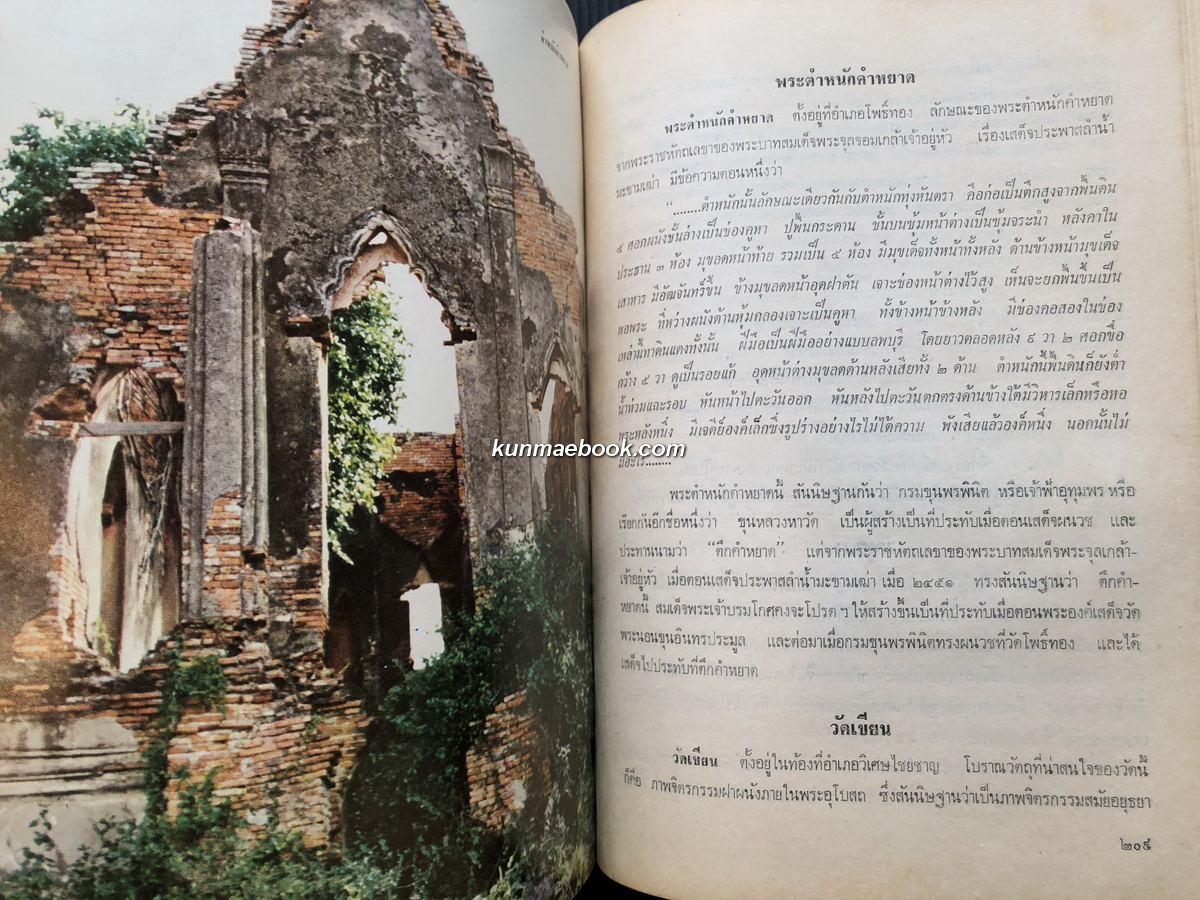 ตำหนักคำหยาด
พระตำหนักคำหยาด
พระตำหนักคำหยาด ตั้งอยู่ที่อำเภอโพธิ์ทอง ลักษณะของพระตำหนักคำหยาด
จากพระราชหัตถเลขาของพระบาทสมเด็จพระจุลจอมเกล้าเจ้าอยู่หัว เรื่องเสด็จประพาสลำน้ำ
มะขามเฒ่า มีข้อความตอนหนึ่งว่า
"........ตำหนักนั้นลักษณะเดียวกันกับตำหนักทุ่งหันตรา คือก่อเป็นตึกสูงจากพื้นดิน
๕ ศอกผนังชั้นล่างเป็นช่องคูหา ปูพื้นกระดาน ชั้นบนซุ้มหน้าต่างเป็นซุ้มจระนำ หลังคาใน
ประธาน ๓ ห้อง มุขลดหน้าท้าย รวมเป็น ๕ ห้อง มีมุขเด็จทั้งหน้าทั้งหลัง ด้านข้างหน้ามุขเด็จ
เสาหาร มีอัฒจันทร์ขึ้น ข้างมุขลดหน้าอุดฝาตัน เจาะช่องหน้าต่างไว้สูง เห็นจะยกพื้นขึ้นเป็น
หอพระ ที่หว่างผนังด้านหุ้มกลองเจาะเป็นคูหา ทั้งข้างหน้าข้างหลัง มีช่องคอสองในช่อง
เหล่านี้ทาดินแดงทั้งนั้น ฝีมือเป็นฝีมืออย่างแบบลพบุรี โดยยาวตลอดหลัง ๙ วา ๒ ศอกขื่อ
กว้าง ๕ วา ดูเป็นรอยแก้ อุดหน้าต่างมุขลดด้านหลังเสียทั้ง ๒ ด้าน ตำหนักนี้พื้นดินก็ยังต่ำ
น้ำท่วมแฉะรอบ หันหน้าไปตะวันออก หันหลังไปตะวันตกตรงด้านข้างใต้มีวิหารเล็กหรือหอ
พระหลังหนึ่ง มีเจดีย์องค์เล็กซึ่งรูปร่างอย่างไรไม่ได้ความ พังเสียแล้วองค์หนึ่ง นอกนั้นไม่
มีอะไร........
พระตำหนักคำหยาดนี้ สันนิษฐานกันว่า กรมขุนพรพินิต หรือเจ้าฟ้าอุทุมพร หรือ
เรียกกันอีกชื่อหนึ่งว่า ขุนหลวงหาวัด เป็นผู้สร้างเป็นที่ประทับเมื่อตอนเสด็จผนวช และ
ประทานนามว่า "ตึกคำหยาด" แต่จากพระราชหัตถเลขาของพระบาทสมเด็จพระจุลเกล้า-
เจ้าอยู่หัว เมื่อตอนเสด็จประพาสลำน้ำมะขามเฒ่า เมื่อ ๒๔๕๑ ทรงสันนิษฐานว่า ตึกคำ-
หยาดนี้ สมเด็จพระเจ้าบรมโกศคงจะโปรด ฯ ให้สร้างขึ้นเป็นที่ประทับเมื่อตอนพระองค์เสด็จวัด
พระนอนขุนอินทรประมูล และต่อมาเมื่อกรมขุนพรพินิตทรงผนวชที่วัดโพธิ์ทอง และได้
เสด็จไปประทับที่ตึกคำหยาด
วัดเขียน
วัดเขียน ตั้งอยู่ในท้องที่อำเภอวิเศษไชยชาญ โบราณวัตถุที่น่าสนใจของวัดนี้
ก็คือ ภาพจิตรกรรมฝาผนังภายในพระอุโบสถ ซึ่งสันนิษฐานว่าเป็นภาพจิตรกรรมสมัยอยุธยา
๒๐๙
kunmaebook.com